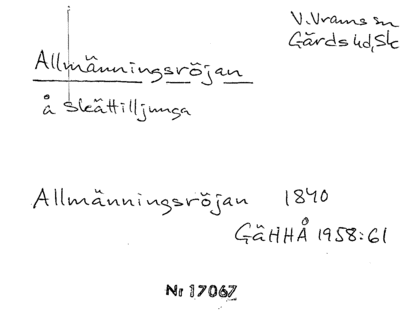 V. Vrams sn
Gärds hd, Sk
Allmänningsröjan
å Skättilljunga
Allmänningsröjan 1840
GäHHÅ 1958:61
Nr 17067